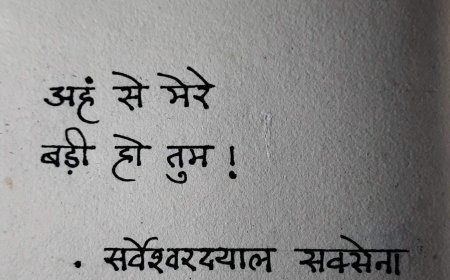 अहं से मेरे
बड़ी हो तुम !
. सर्वेश्वरदयाल सक्सेना